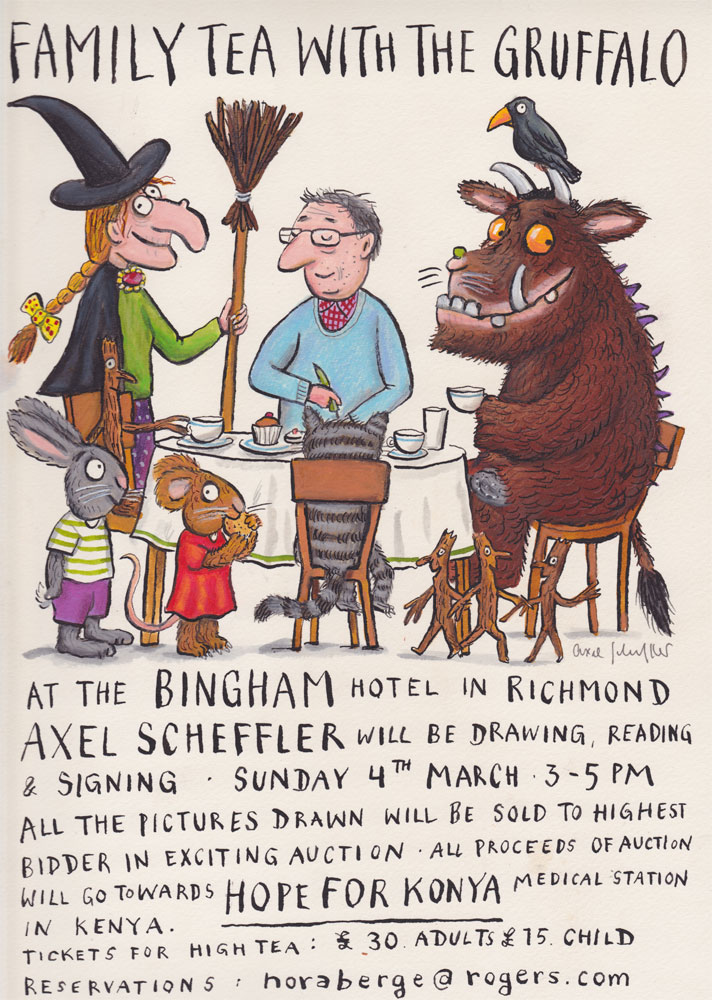 FAMILY TEA WITH THE GRUFFALO
Axel Scheffler
AT THE BINGHAM HOTEL IN RICHMOND
AXEL SCHEFFLER WILL BE DRAWING, READING
& SIGNING · SUNDAY 4TH MARCH · 3-5 PM
ALL THE PICTURES DRAWN WILL BE SOLD TO HIGHEST
BIDDER IN EXCITING AUCTION · ALL PROCEEDS OF AUCTION
WILL GO TOWARDS HOPE FOR KONYA MEDICAL STATION
IN KENYA.
TICKETS FOR HIGH TEA: £ 30. ADULTS £ 15. CHILD
RESERVATIONS: horaberge@rogers.com